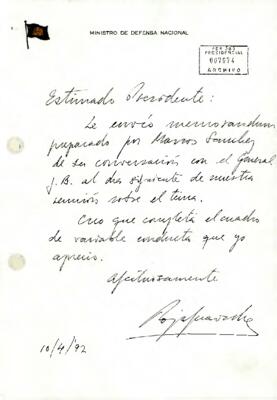 MINISTRO DE DEFENSA NACIONAL
PRESIDENCIAL
007674
ARCHIVO
Estimado Presidente:
Le envío memorandum
preparado por Marcos Sanchez
de su conversación con el General
J.B. al día siguiente de nuestra
reunión sobre el tema.
Creo que completa el cuadro
de variable conducta que yo
aprecio.
Afectuosamente
10/4/92